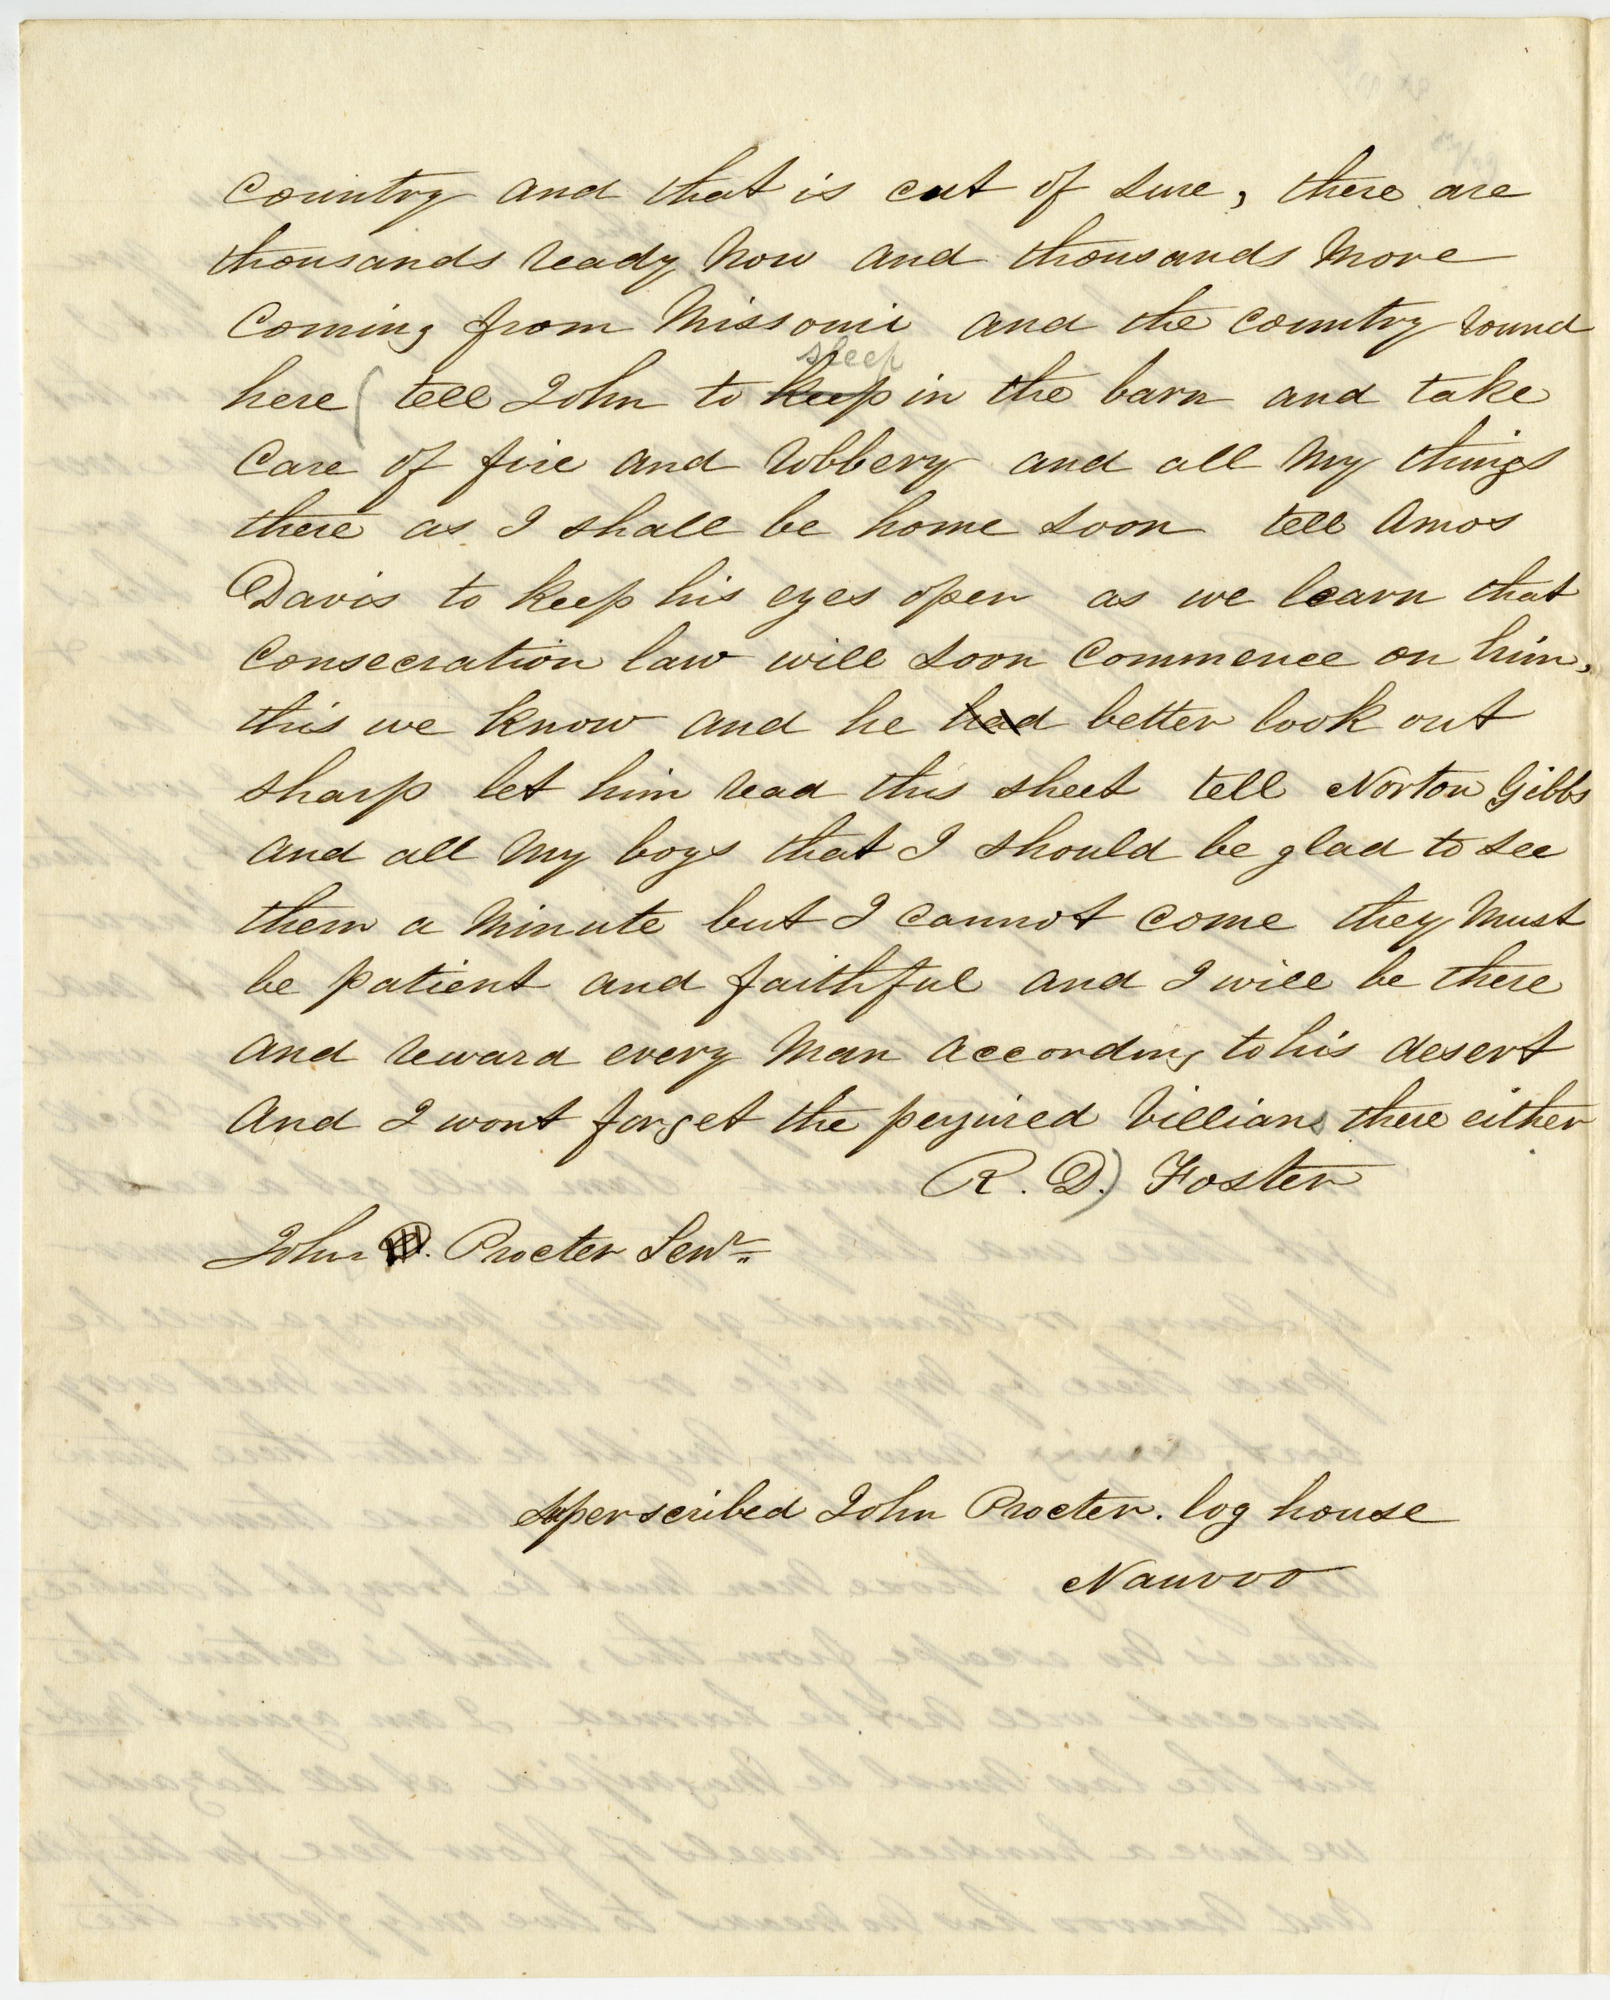 country and that is cut of sure, there are
thousands ready now and thousands more
coming from Missouri and the country round
sleep
here ( tell John to keep in the barn and take
care of fire and robbery and all my things
there as I shall be home soon tell Amos
Davis to keep his eyes open as we learn that
consecration law will soon commence on him,
this we know and he had better look out
sharp let him read this sheet tell Norton Gibbs
and all my boys that I should be glad to see
them a minute but I cannot come they must
be patient and faithful and I will be there
and reward every man according to his desert
and I wont forget the perjured villians there either
R. D.) Foster
John Procter Senr.
Superscribed John Procter. log house
Nauvoo